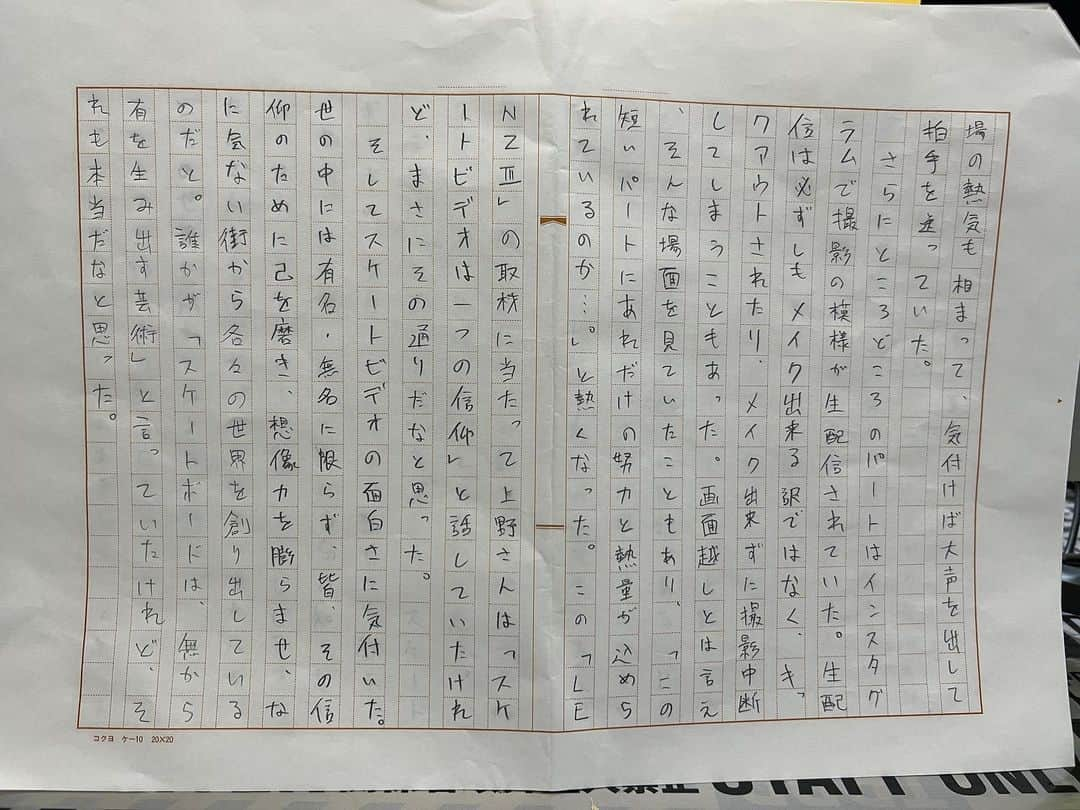 場の熱気も相まって、気付けば大声を出して
拍手を送っていた。
さらにところどころのパートはインスタグ
ラムで撮影の模様が生配信されていた。生配
信は必ずしもメイク出来る訳ではなく、キッ
クアウトされたり、メイク出来ずに撮影中断
してしまうこともあった。画面越しとは言え
、そんな場面を見ていたこともあり、「この
短いパートにあれだけの努力と熱量が込めら
れているのか…。」と熱くなった。この「LE
NZ Ⅲ」の取材に当たって上野さんは「スケ
ートビデオは一つの信仰」と話していたけれ
ど、まさにその通りだなと思った。
そしてスケートビデオの面白さに気付いた。
世の中には有名・無名に限らず、皆、その信
仰のために己を磨き、想像力を膨らませ、な
に気ない街から各々の世界を創り出している
のだと。誰かが「スケートボードには、無から
有を生み出す芸術」と言っていたけれど、そ
れも本当だなと思った。
コクヨ ケー10 20×20
STAFF ONL